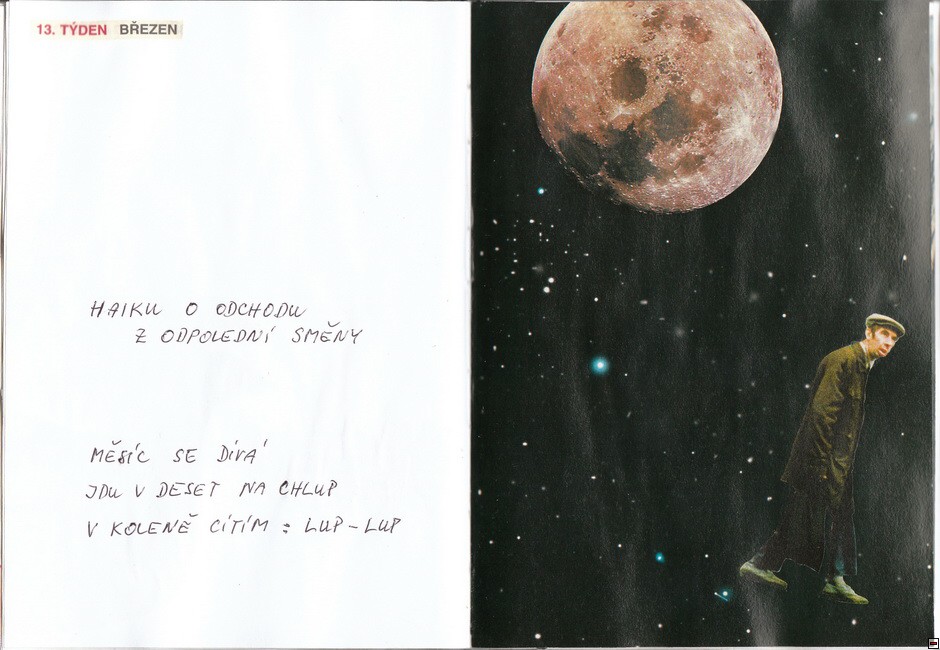 13. TÝDEN BŘEZEN
HAIKU O ODCHODU
Z ODPOLEDNÍ SMĚNY
MĚSÍC SE DÍVÁ
JDU V DESET NA CHLUP
V KOLENĚ CÍTÍM : LUP-LUP